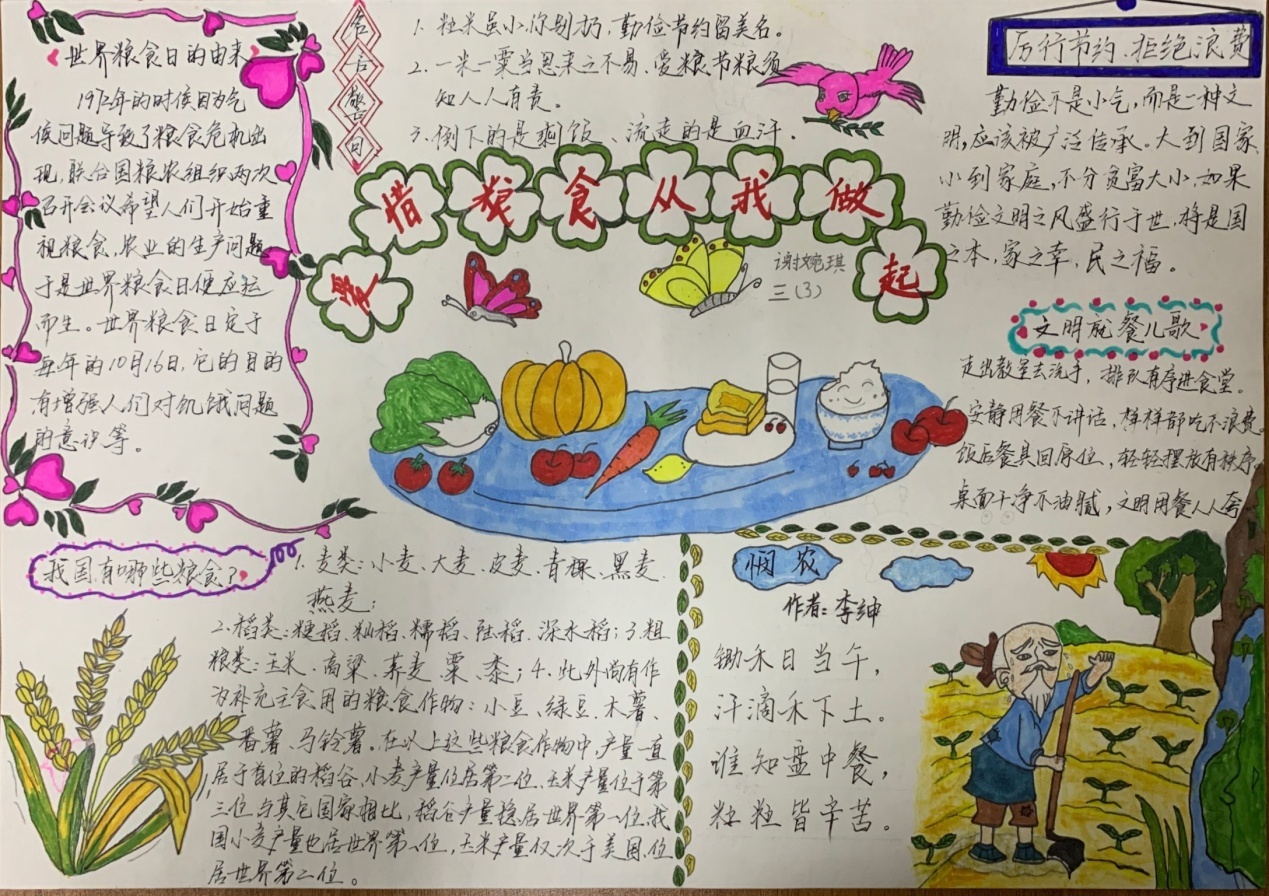 世界粮食日的由来
1972年的时候因为气
候问题导致了粮食危机出
现,联合国粮农组织两次
召开会议希望人们开始重
视粮食、农业的生产问题
于是世界粮食日便应运
而生。世界粮食日定于
每年的10月16日,它的目的
有增强人们对饥饿问题
的意识等。
名言警句
1. 粒米虽小你别扔,勤俭节约留美名。
2. 一米一粟当思来之不易、爱粮节粮须
知人人有责。
3. 倒下的是剩饭、流走的是血汗.
爱惜粮食从我做起
谢婉琪
三(3)
厉行节约、拒绝浪费
勤俭不是小气,而是一种文
明,应该被广泛传承。大到国家、
小到家庭,不分贫富大小,如果
勤俭文明之风盛行于世,将是国
之本,家之幸,民之福。
文明就餐儿歌
走出教室去洗手,排队有序进食堂。
安静用餐不讲话,样样都吃不浪费。
饭后餐具回原位,轻轻摆放有秩序。
桌面干净不油腻,文明用餐人人夸
我国有哪些粮食?
1. 麦类:小麦、大麦、皮麦、青稞、黑麦、
燕麦;
2. 稻类:粳稻、籼稻、糯稻、陆稻、深水稻;3.粗
粮类:玉米、高粱、荞麦、粟、黍;4.此外尚有作
为补充主食用的粮食作物:小豆、绿豆、木薯、
番薯、马铃薯。在以上这些粮食作物中,产量一直
居于首位的稻谷、小麦产量位居第二位、玉米产量位于第
三位与其它国家相比,稻谷产量稳居世界第一位,我
国小麦产量也居世界第一位,玉米产量仅次于美国,位
居世界第二位。
悯农
作者:李绅
锄禾日当午,
汗滴禾下土。
谁知盘中餐,
粒粒皆辛苦。